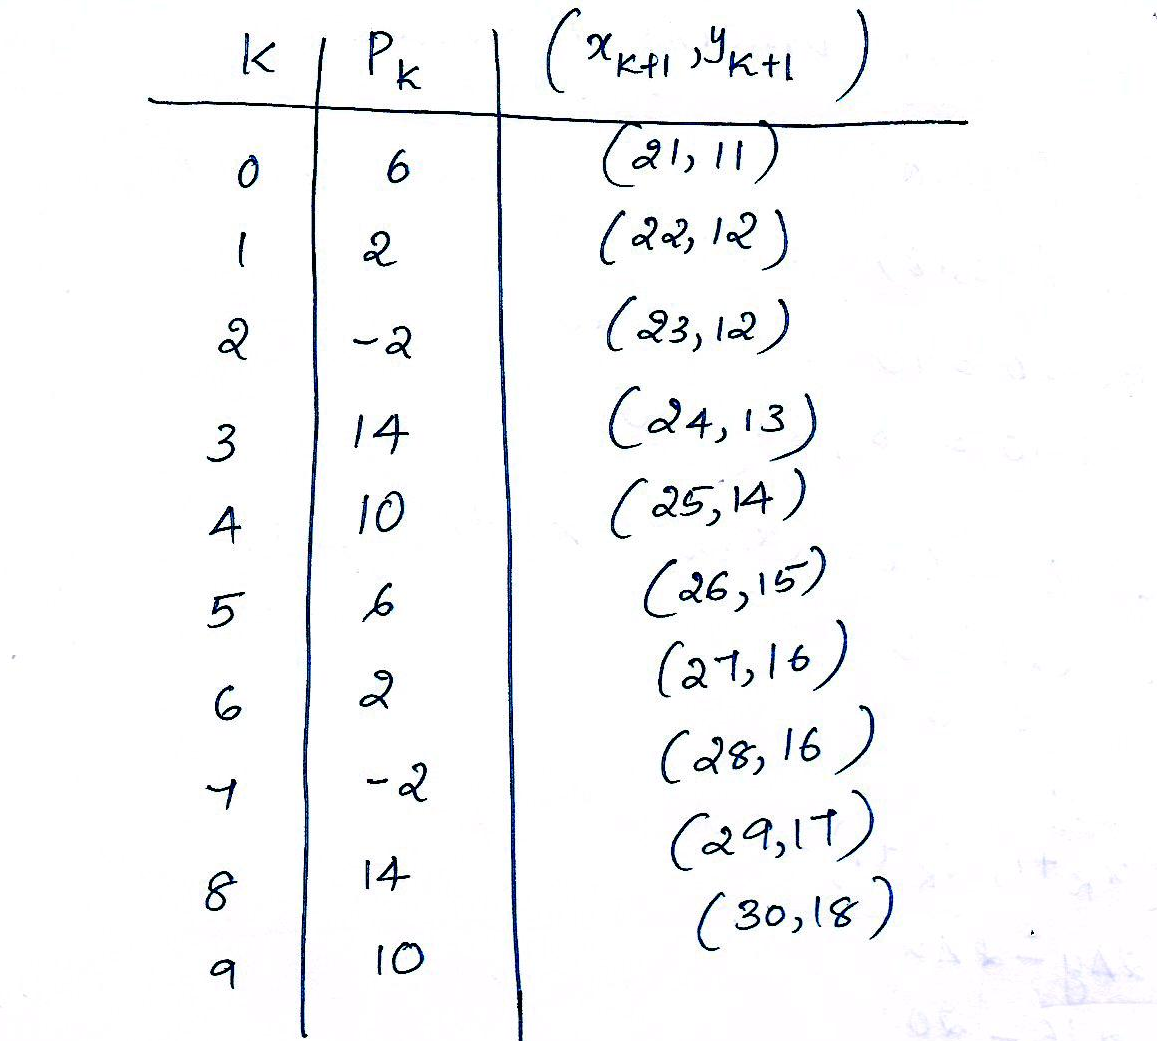 K | Pk | (xk+1, yk+1)
0 | 6 | (21, 11)
1 | 2 | (22, 12)
2 | -2 | (23, 12)
3 | 14 | (24, 13)
4 | 10 | (25, 14)
5 | 6 | (26, 15)
6 | 2 | (27, 16)
7 | -2 | (28, 16)
8 | 14 | (29, 17)
9 | 10 | (30, 18)